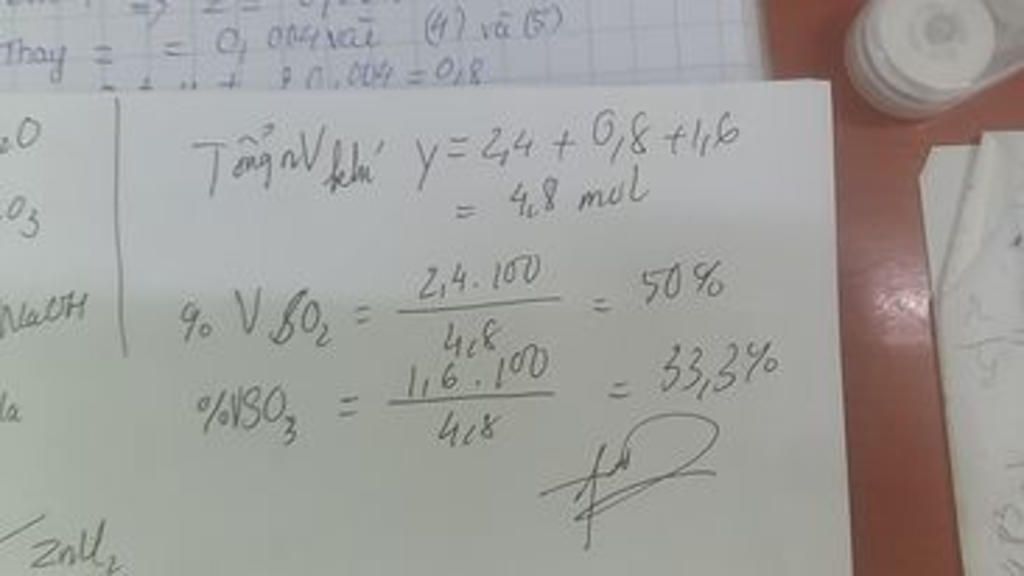 Thay = = 0,004 vài (4) và (5)
0,004 = 0,8
2O
O3
NaOH
Tổng nV khí y = 2,4 + 0,8 + 1,6
= 4,8 mol
% V SO2 = 2,4.100 / 4,8 = 50%
%VSO3 = 1,6.100 / 4,8 = 33,3%